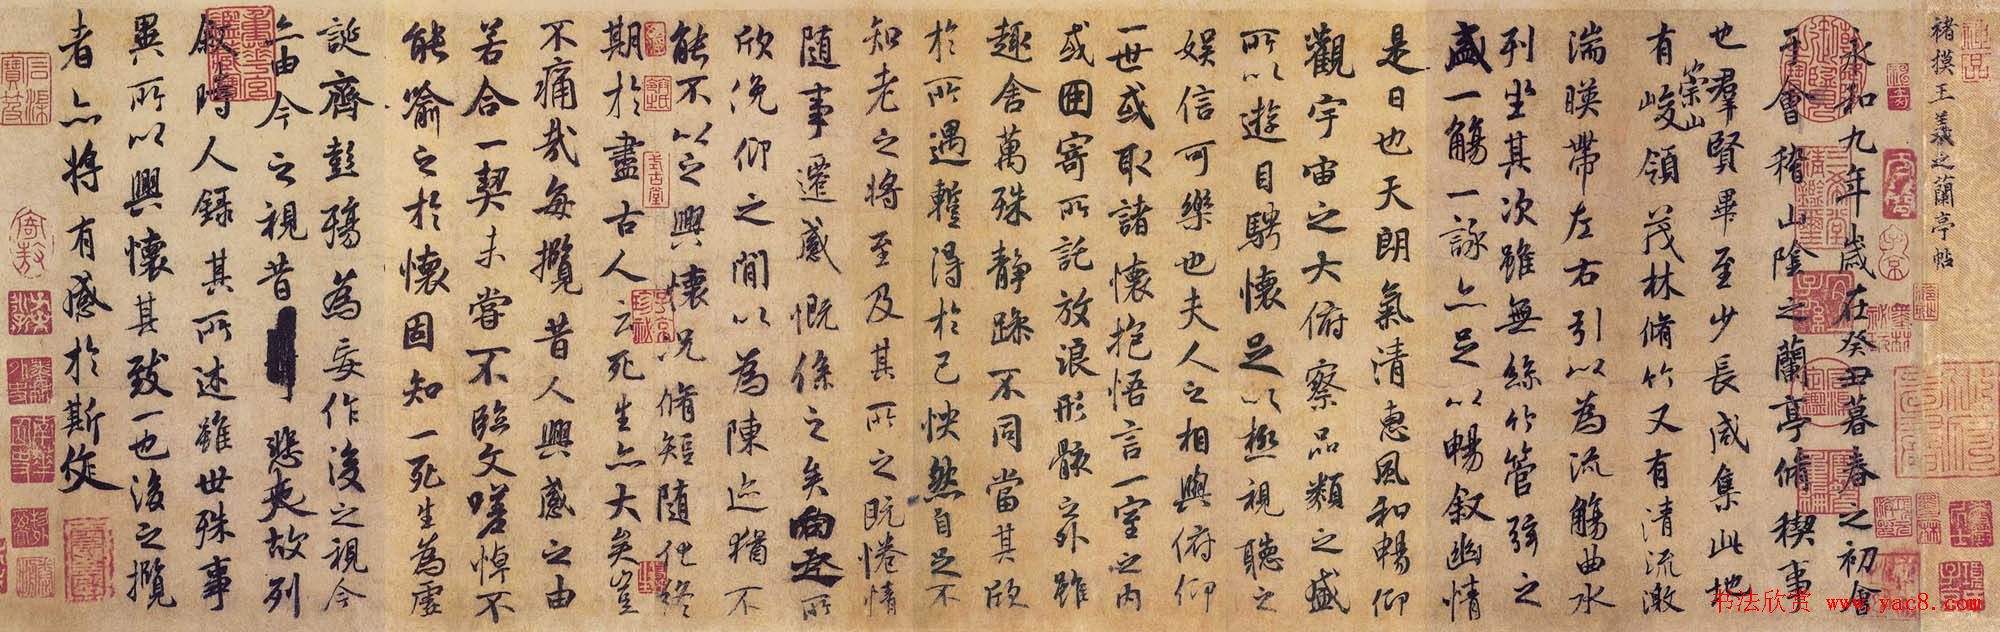 褚摸王羲之蘭亭帖
永和九年歲在癸丑暮春之初會
于會稽山陰之蘭亭脩稧事
也羣賢畢至少長咸集此地
有崇山峻領茂林脩竹又有清流激
湍暎帶左右引以為流觴曲水
列坐其次雖無絲竹管弦之
盛一觴一詠亦足以暢叙幽情
是日也天朗氣清惠風和暢仰
觀宇宙之大俯察品類之盛
所以遊目騁懷足以極視聽之
娛信可樂也夫人之相與俯仰
一世或取諸懷抱悟言一室之內
或因寄所託放浪形骸之外雖
趣舍萬殊靜躁不同當其欣
於所遇蹔得於己怏然自足不
知老之將至及其所之既惓情
隨事遷感慨係之矣向之所
欣俛仰之閒以為陳迹猶不
能不以之興懷況脩短隨化終
期於盡古人云死生亦大矣豈
不痛哉每攬昔人興感之由
若合一契未嘗不臨文嗟悼不
能喻之於懷固知一死生為虛
誕齊彭殤為妄作後之視今
亦由今之視昔悲夫故列
叙時人錄其所述雖世殊事
異所以興懷其致一也後之攬
者亦將有感於斯文
书法欣赏 www.yac8.com